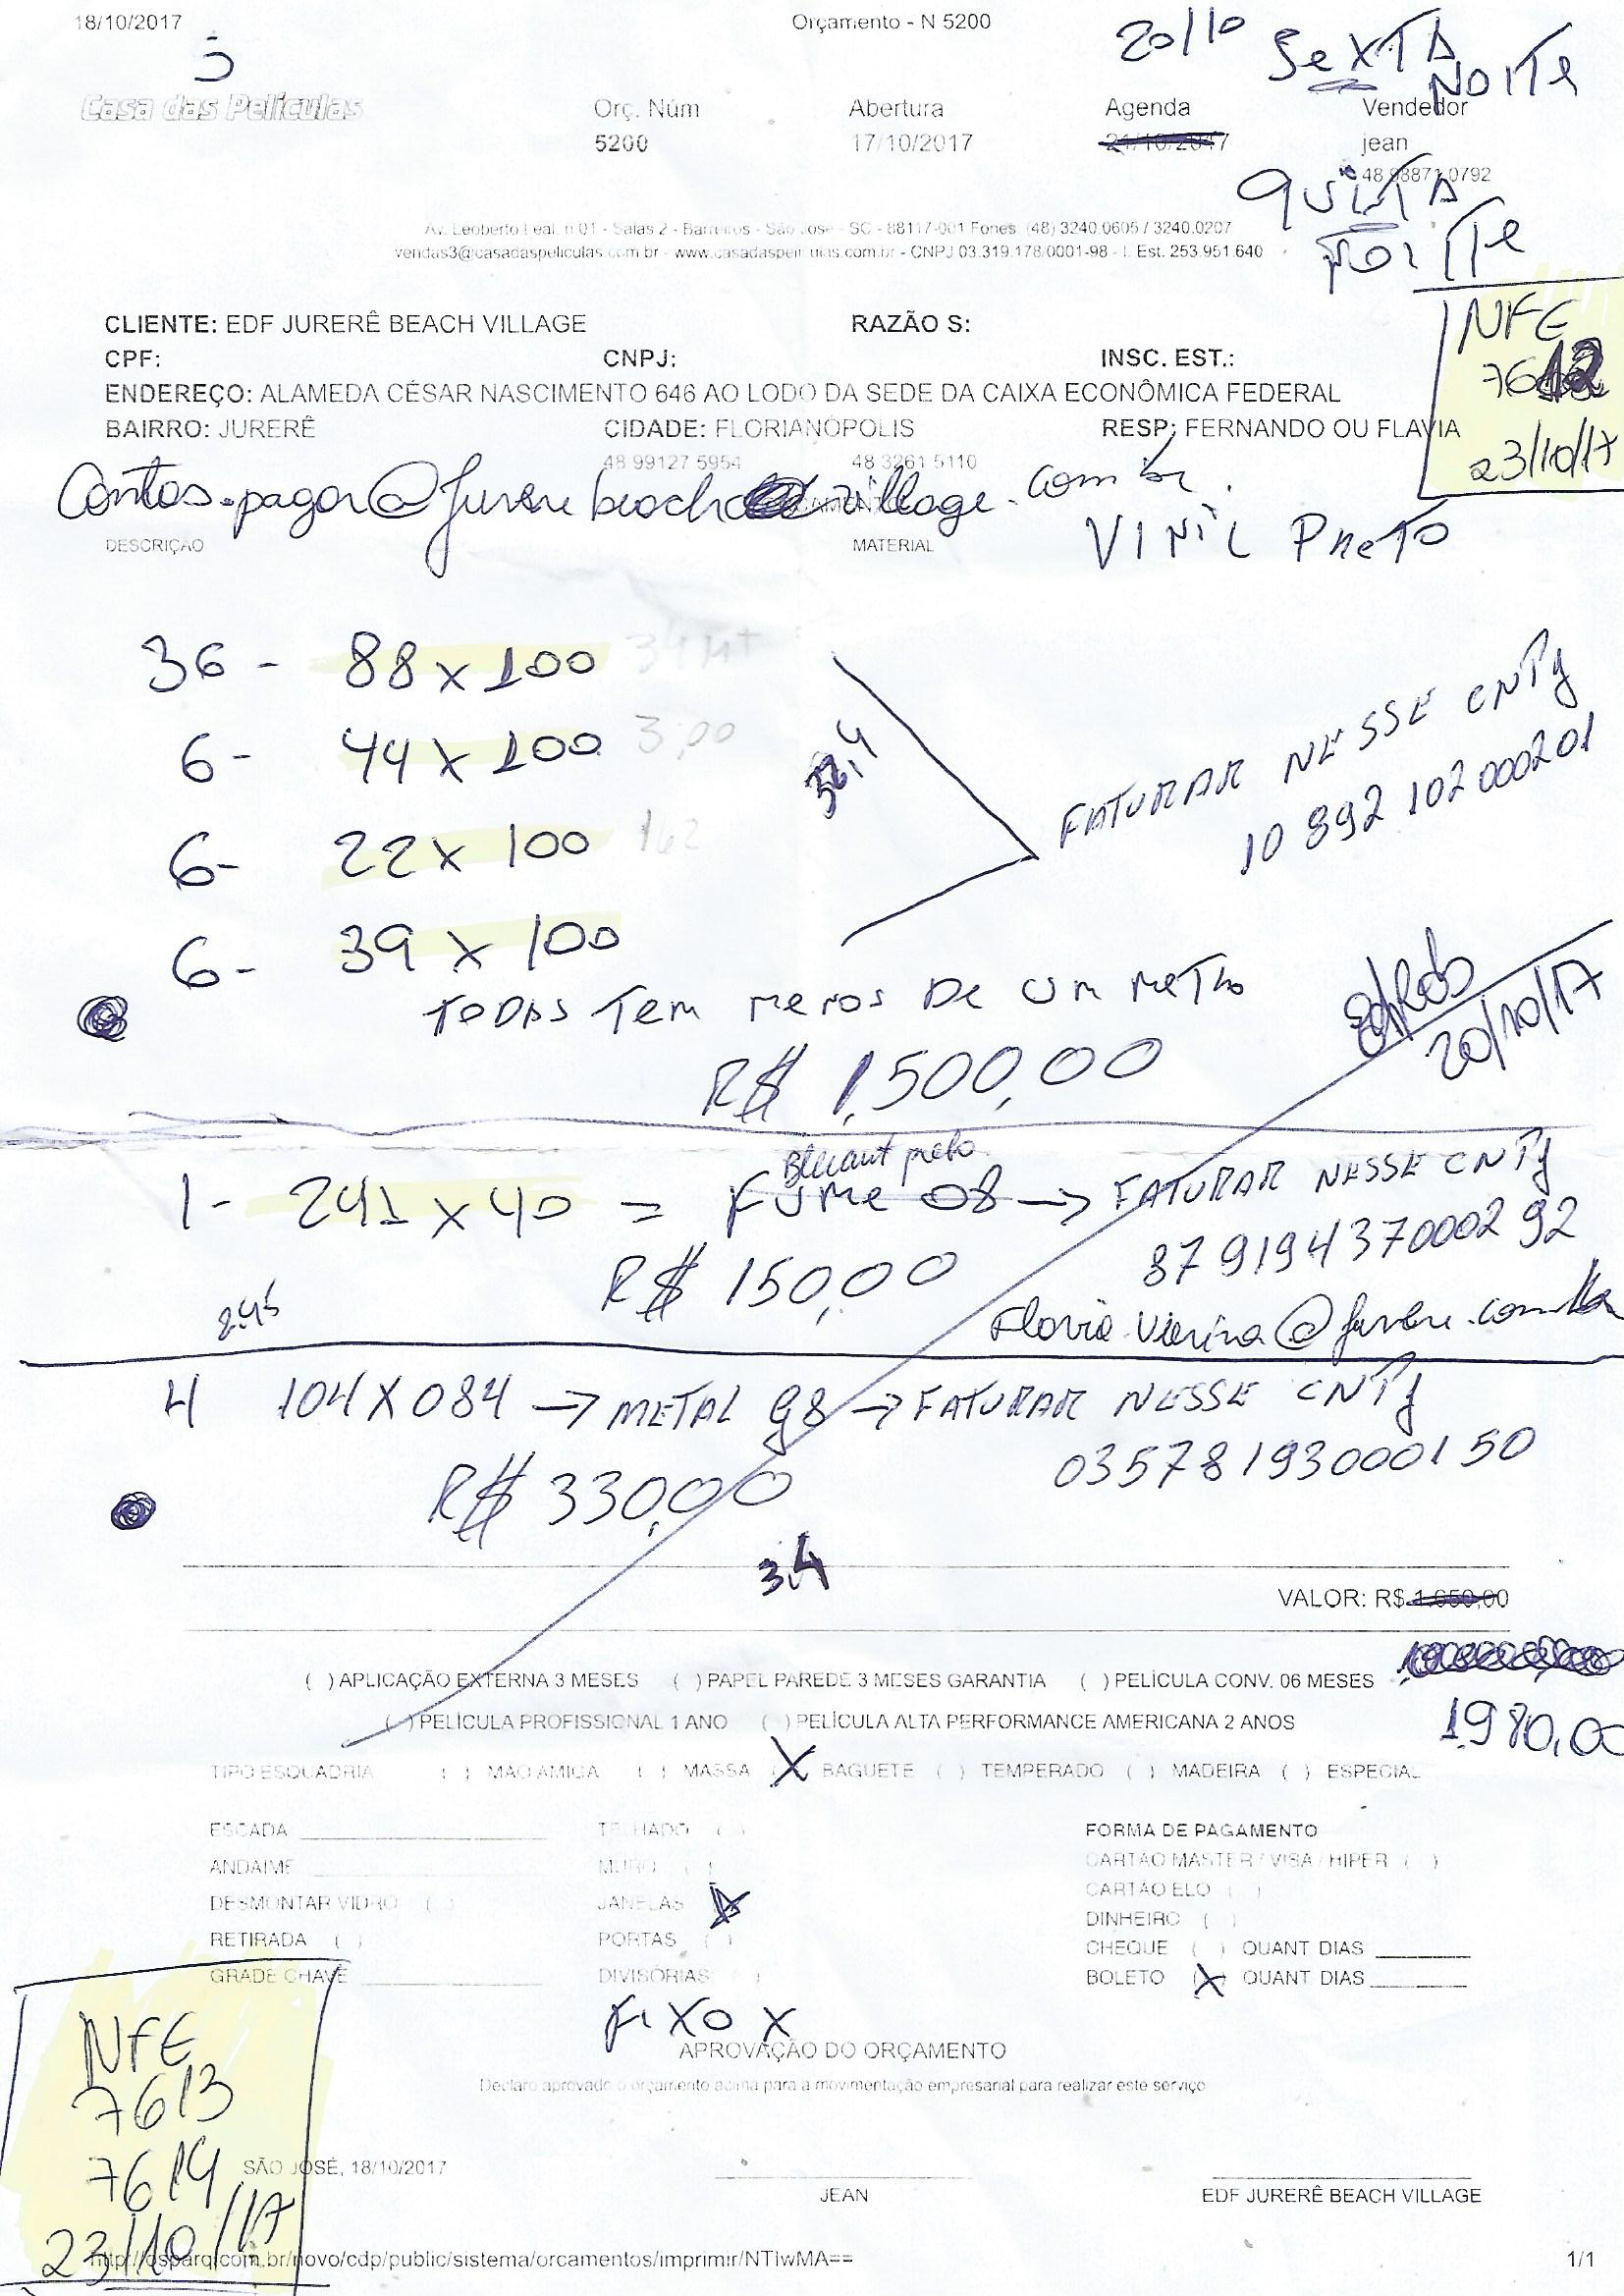 18/10/2017
Orçamento - N 5200
20/10 SEXTA NOITE
Casa das Películas
Orç. Núm
Abertura
Agenda
Vendedor
5200
17/10/2017
21/10/2017
jean
48 98871 0792
QUINTA NOITE
Av. Leoberto Leal, n 01 - Salas 2 - Barreiros - São José - SC - 88117-001 Fones: (48) 3240.0605 / 3240.0207
vendas3@casadaspeliculas.com.br - www.casadaspeliculas.com.br - CNPJ 03.319.178/0001-98 - I. Est. 253.951.640
NFE
7612
23/10/17
CLIENTE: EDF JURERÊ BEACH VILLAGE
RAZÃO S:
CPF:
CNPJ:
INSC. EST.:
ENDEREÇO: ALAMEDA CÉSAR NASCIMENTO 646 AO LODO DA SEDE DA CAIXA ECONÔMICA FEDERAL
BAIRRO: JURERÊ
CIDADE: FLORIANÓPOLIS
RESP: FERNANDO OU FLAVIA
48 99127 5954
48 3261 5110
Contas.pagar@jurerebeach village.com.br
DESCRIÇÃO
MATERIAL
VINIL PRETO
36 - 88 x 100
6 - 44 x 100 3,00
6 - 22 x 100 1,62
6 - 39 x 100
FATURAR NESSE CNPJ
10 892 102 000201
TODAS TEM MENOS DE UM METRO
R$ 1,500,00
20/10/17
1 - 241 x 40 = FUME 08 → FATURAR NESSE CNPJ
Blecaut preto
87919437000292
R$ 150,00
2.45
Flavia.Vieira@jurere.com.br
4 104 X 084 → METAL G8 → FATURAR NESSE CNPJ
03578193000150
R$ 330,00
3.4
VALOR: R$ 1.650,00
( ) APLICAÇÃO EXTERNA 3 MESES ( ) PAPEL PAREDE 3 MESES GARANTIA ( ) PELÍCULA CONV. 06 MESES
( ) PELÍCULA PROFISSIONAL 1 ANO ( ) PELÍCULA ALTA PERFORMANCE AMERICANA 2 ANOS
1.980,00
TIPO ESQUADRIA ( ) MAO AMIGA ( ) MASSA (X) BAGUETE ( ) TEMPERADO ( ) MADEIRA ( ) ESPECIAL
ESCADA
TELHADO ( )
FORMA DE PAGAMENTO
ANDAIME
MURO ( )
CARTÃO MASTER / VISA / HIPER ( )
DESMONTAR VIDRO ( )
JANELAS (X)
CARTÃO ELO ( )
DINHEIRO ( )
RETIRADA ( )
PORTAS ( )
CHEQUE ( ) QUANT DIAS
GRADE CHAVE
DIVISÓRIAS ( )
BOLETO (X) QUANT DIAS
FIXO X
APROVAÇÃO DO ORÇAMENTO
Declaro aprovado o orçamento acima para a movimentação empresarial para realizar este serviço
NFE
7613
7614
23/10/17
SÃO JOSÉ, 18/10/2017
JEAN
EDF JURERÊ BEACH VILLAGE
http://osparq.com.br/novo/cdp/public/sistema/orcamentos/imprimir/NTIwMA==
1/1